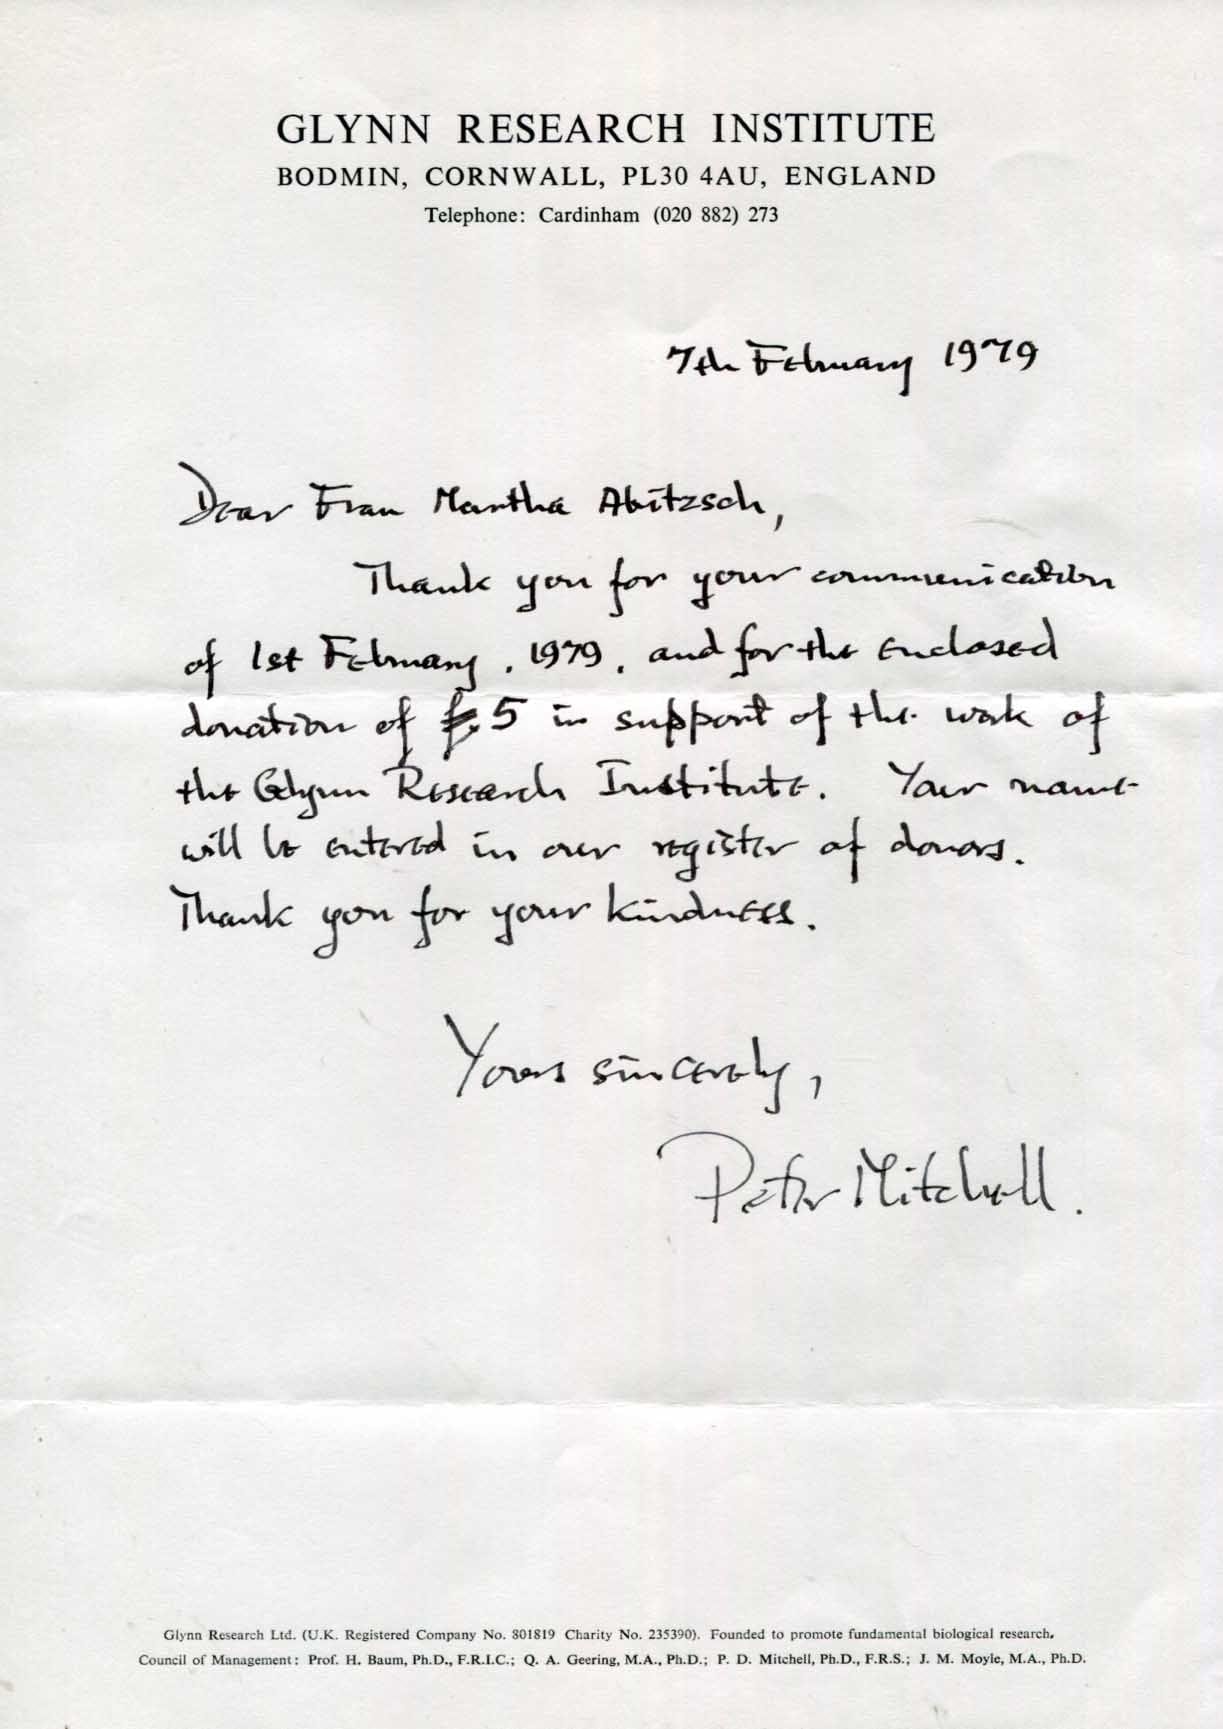 GLYNN RESEARCH INSTITUTE
BODMIN, CORNWALL, PL30 4AU, ENGLAND
Telephone: Cardinham (020 882) 273
7th February 1979
Dear Frau Martha Abitzsch,
Thank you for your communication
of 1st February, 1979, and for the enclosed
donation of £5 in support of the work of
the Glynn Research Institute. Your name
will be entered in our register of donors.
Thank you for your kindness.
Yours sincerely,
Peter Mitchell.
Glynn Research Ltd. (U.K. Registered Company No. 801819 Charity No. 235390). Founded to promote fundamental biological research.
Council of Management: Prof. H. Baum, Ph.D., F.R.I.C.; Q. A. Geering, M.A., Ph.D.; P. D. Mitchell, Ph.D., F.R.S.; J. M. Moyle, M.A., Ph.D.